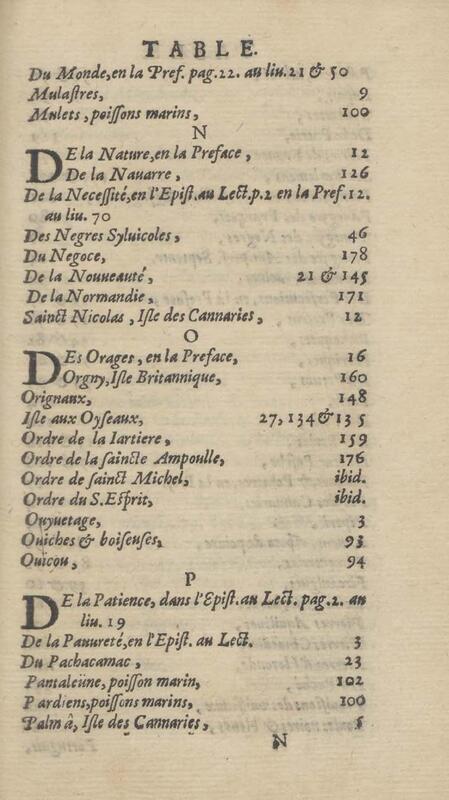 TABLE.
Du Monde, en la Pref. pag.22. au liu.21 & 50
Mulastres, 9
Mulets, poissons marins, 100
N
DE la Nature, en la Preface, 12
De la Nauarre, 126
De la Necessité, en l'Epist. au Lect. p.2 en la Pref.12.
au liu. 70
Des Negres Syluicoles, 46
Du Negoce, 178
De la Nouueauté, 21 & 145
De la Normandie, 171
Sainct Nicolas, Isle des Cannaries, 12
O
DEs Orages, en la Preface, 16
Orgny, Isle Britannique, 160
Orignaux, 148
Isle aux Oyseaux, 27, 134 & 135
Ordre de la Iartiere, 159
Ordre de la saincte Ampoulle, 176
Ordre de sainct Michel, ibid.
Ordre du S. Esprit, ibid.
Ouyuetage, 3
Ouiches & boiseuses, 93
Ouicou, 94
P
DE la Patience, dans l'Epist. au Lect. pag.2. au
liu. 19
De la Pauureté, en l'Epist. au Lect. 3
Du Pachacamac, 23
Pantaleüne, poisson marin, 102
Pardiens, poissons marins, 100
Palm â, Isle des Cannaries, 5
N